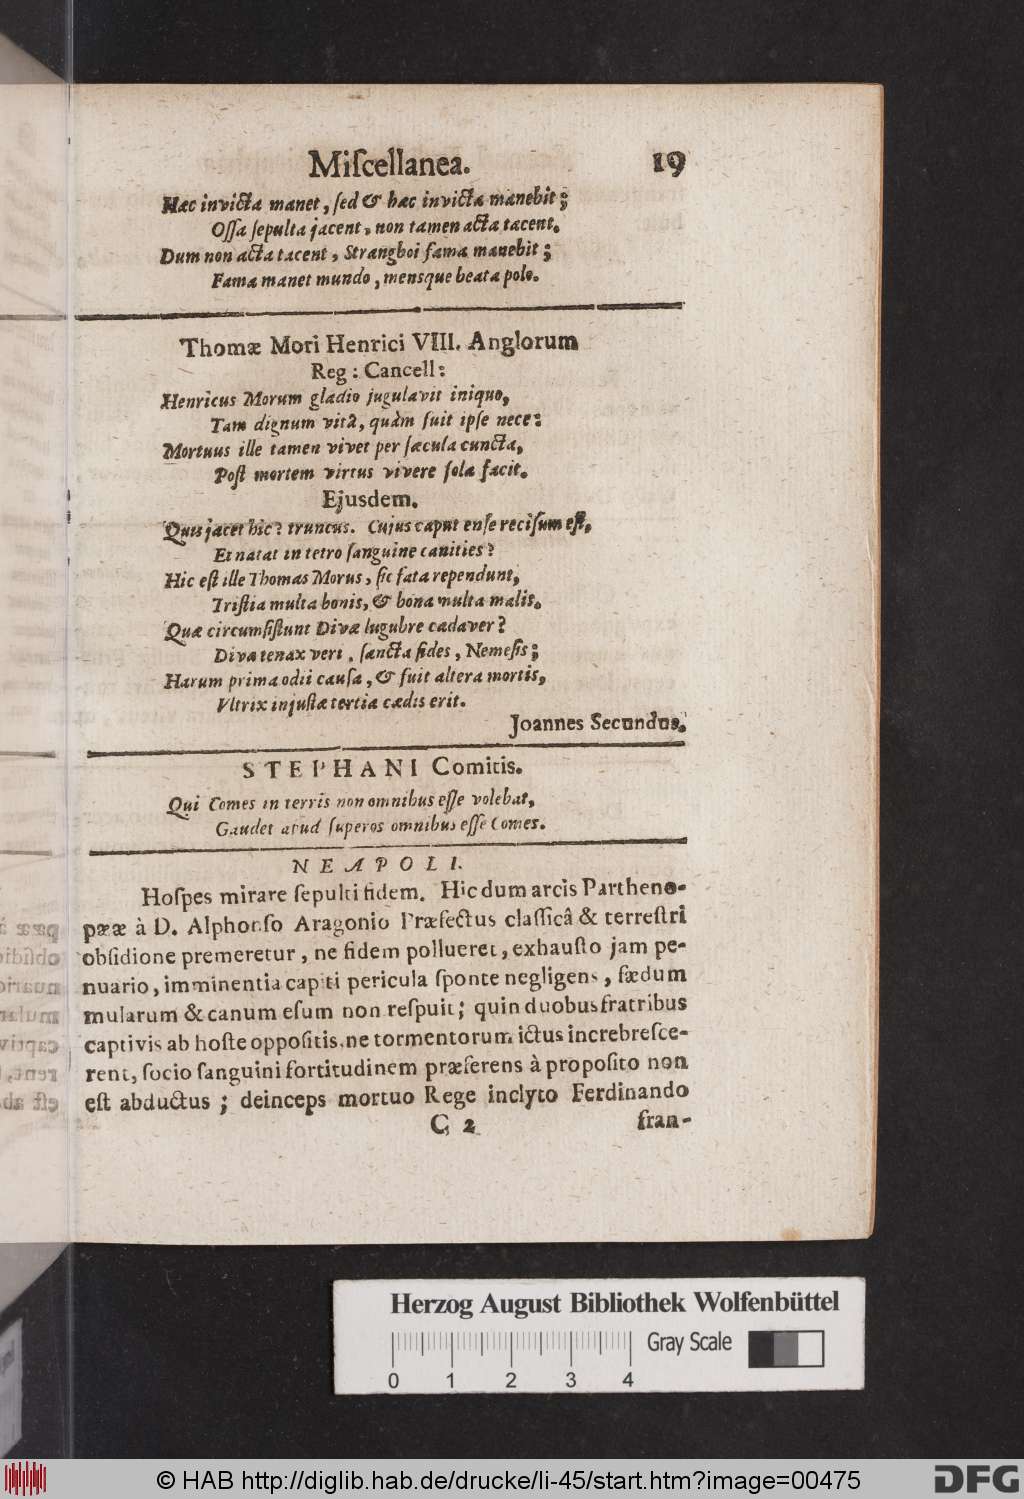 Miſcellanea. 19
Hæc invicta manet, ſed & hæc invicta manebit;
Oſſa ſepulta jacent, non tamen acta tacent.
Dum non acta tacent, Strangboi fama manebit;
Fama manet mundo, mensque beata polo.
Thomæ Mori Henrici VIII. Anglorum
Reg: Cancell:
Henricus Morum gladio jugulavit iniquo,
Tam dignum vitâ, quàm fuit ipſe nece:
Mortuus ille tamen vivet per ſæcula cuncta,
Poſt mortem virtus vivere ſola facit.
Ejusdem.
Quis jacet hic? truncus. Cujus caput enſe reciſum eſt,
Et natat in tetro ſanguine canities?
Hic eſt ille Thomas Morus, ſic fata rependunt,
Triſtia multa bonis, & bona multa malis.
Quæ circumſiſtunt Divæ lugubre cadaver?
Diva tenax veri, ſancta fides, Nemeſis;
Harum prima odii cauſa, & fuit altera mortis,
Vltrix injuſtæ tertia cædis erit.
Joannes Secundus.
STEPHANI Comitis.
Qui Comes in terris non omnibus eſſe volebat,
Gaudet apud ſuperos omnibus eſſe Comes.
NEAPOLI.
Hoſpes mirare ſepulti fidem. Hic dum arcis Partheno-
pææ à D. Alphonſo Aragonio Præfectus claſſicâ & terreſtri
obſidione premeretur, ne fidem pollueret, exhauſto jam pe-
nuario, imminentia capiti pericula ſponte negligens, fædum
mularum & canum eſum non reſpuit; quin duobus fratribus
captivis ab hoſte oppoſitis, ne tormentorum ictus increbreſce-
rent, ſocio ſanguini fortitudinem præferens à propoſito non
eſt abductus; deinceps mortuo Rege inclyto Ferdinando
C 2 fran-
Herzog August Bibliothek Wolfenbüttel
Gray Scale
0 1 2 3 4
© HAB http://diglib.hab.de/drucke/li-45/start.htm?image=00475
DFG